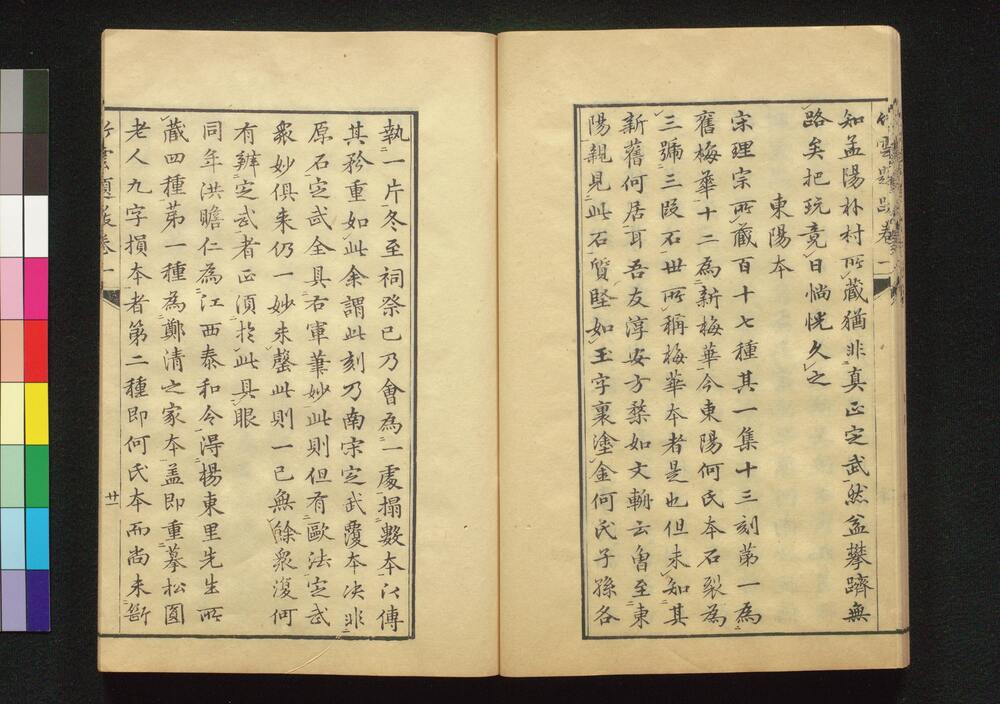 竹雲題跋卷一
知孟陽朴村所藏猶非真正定武然益攀躋無
路矣把玩竟日惝恍久之
東陽本
宋理宗所藏百十七種其一集十三刻第一為
舊梅華十二為新梅華今東陽何氏本石裂為
三號三段石世所稱梅華本者是也但未知其
新舊何居耳吾友淳安方楘如文輈云曾至東
陽親見此石質堅如玉字裏塗金何氏子孫各
執一片冬至祠祭已乃會為一處搨數本以傳
其矜重如此余謂此刻乃南宋定武覆本决非
原石定武全具右軍筆妙此則但有歐法定武
衆妙俱来仍一妙未罄此則一已無餘衆復何
有辨定武者正湏於此具眼
同年洪瞻仁為江西泰和令淂楊東里先生所
藏四種苐一種為鄭清之家本盖即重摹松圓
老人九字損本者第二種即何氏本而尚未斷
竹雲題跋卷一
廿一